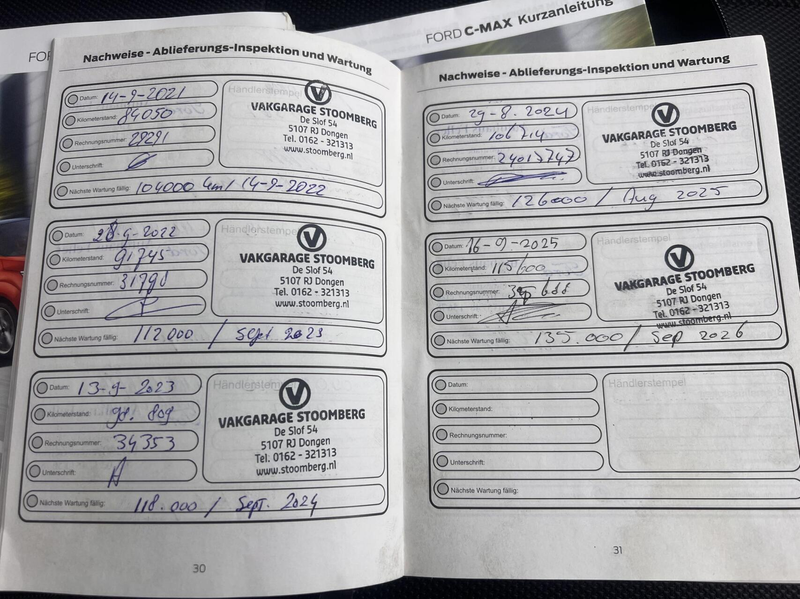 FOR
FORD C-MAX Kurzanleitung
Nachweise - Ablieferungs-Inspektion und Wartung
Datum: 14-9-2021
Kilometerstand: 84050
Rechnungsnummer: 29291
Unterschrift:
Nächste Wartung fällig: 104000 km / 14-9-2022
Händlerstempel
VAKGARAGE STOOMBERG
De Slof 54
5107 RJ Dongen
Tel. 0162 - 321313
www.stoomberg.nl
Datum: 28-9-2022
Kilometerstand: 91745
Rechnungsnummer: 31798
Unterschrift:
Nächste Wartung fällig: 112.000 / Sept 2023
Händlerstempel
VAKGARAGE STOOMBERG
De Slof 54
5107 RJ Dongen
Tel. 0162 - 321313
www.stoomberg.nl
Datum: 13-9-2023
Kilometerstand: 98.809
Rechnungsnummer: 34353
Unterschrift:
Nächste Wartung fällig: 118.000 / Sept. 2024
Händlerstempel
VAKGARAGE STOOMBERG
De Slof 54
5107 RJ Dongen
Tel. 0162 - 321313
www.stoomberg.nl
30
Nachweise - Ablieferungs-Inspektion und Wartung
Datum: 29-8-2024
Kilometerstand: 106714
Rechnungsnummer: 24013747
Unterschrift:
Nächste Wartung fällig: 126000 / Aug 2025
VAKGARAGE STOOMBERG
De Slof 54
5107 RJ Dongen
Tel. 0162 - 321313
www.stoomberg.nl
Datum: 16-09-2025
Kilometerstand: 115600
Rechnungsnummer:
Unterschrift:
Nächste Wartung fällig: 135.000 / Sep 2026
Händlerstempel
VAKGARAGE STOOMBERG
De Slof 54
5107 RJ Dongen
Tel. 0162 - 321313
www.stoomberg.nl
Datum:
Kilometerstand:
Rechnungsnummer:
Unterschrift:
Nächste Wartung fällig:
Händlerstempel
31